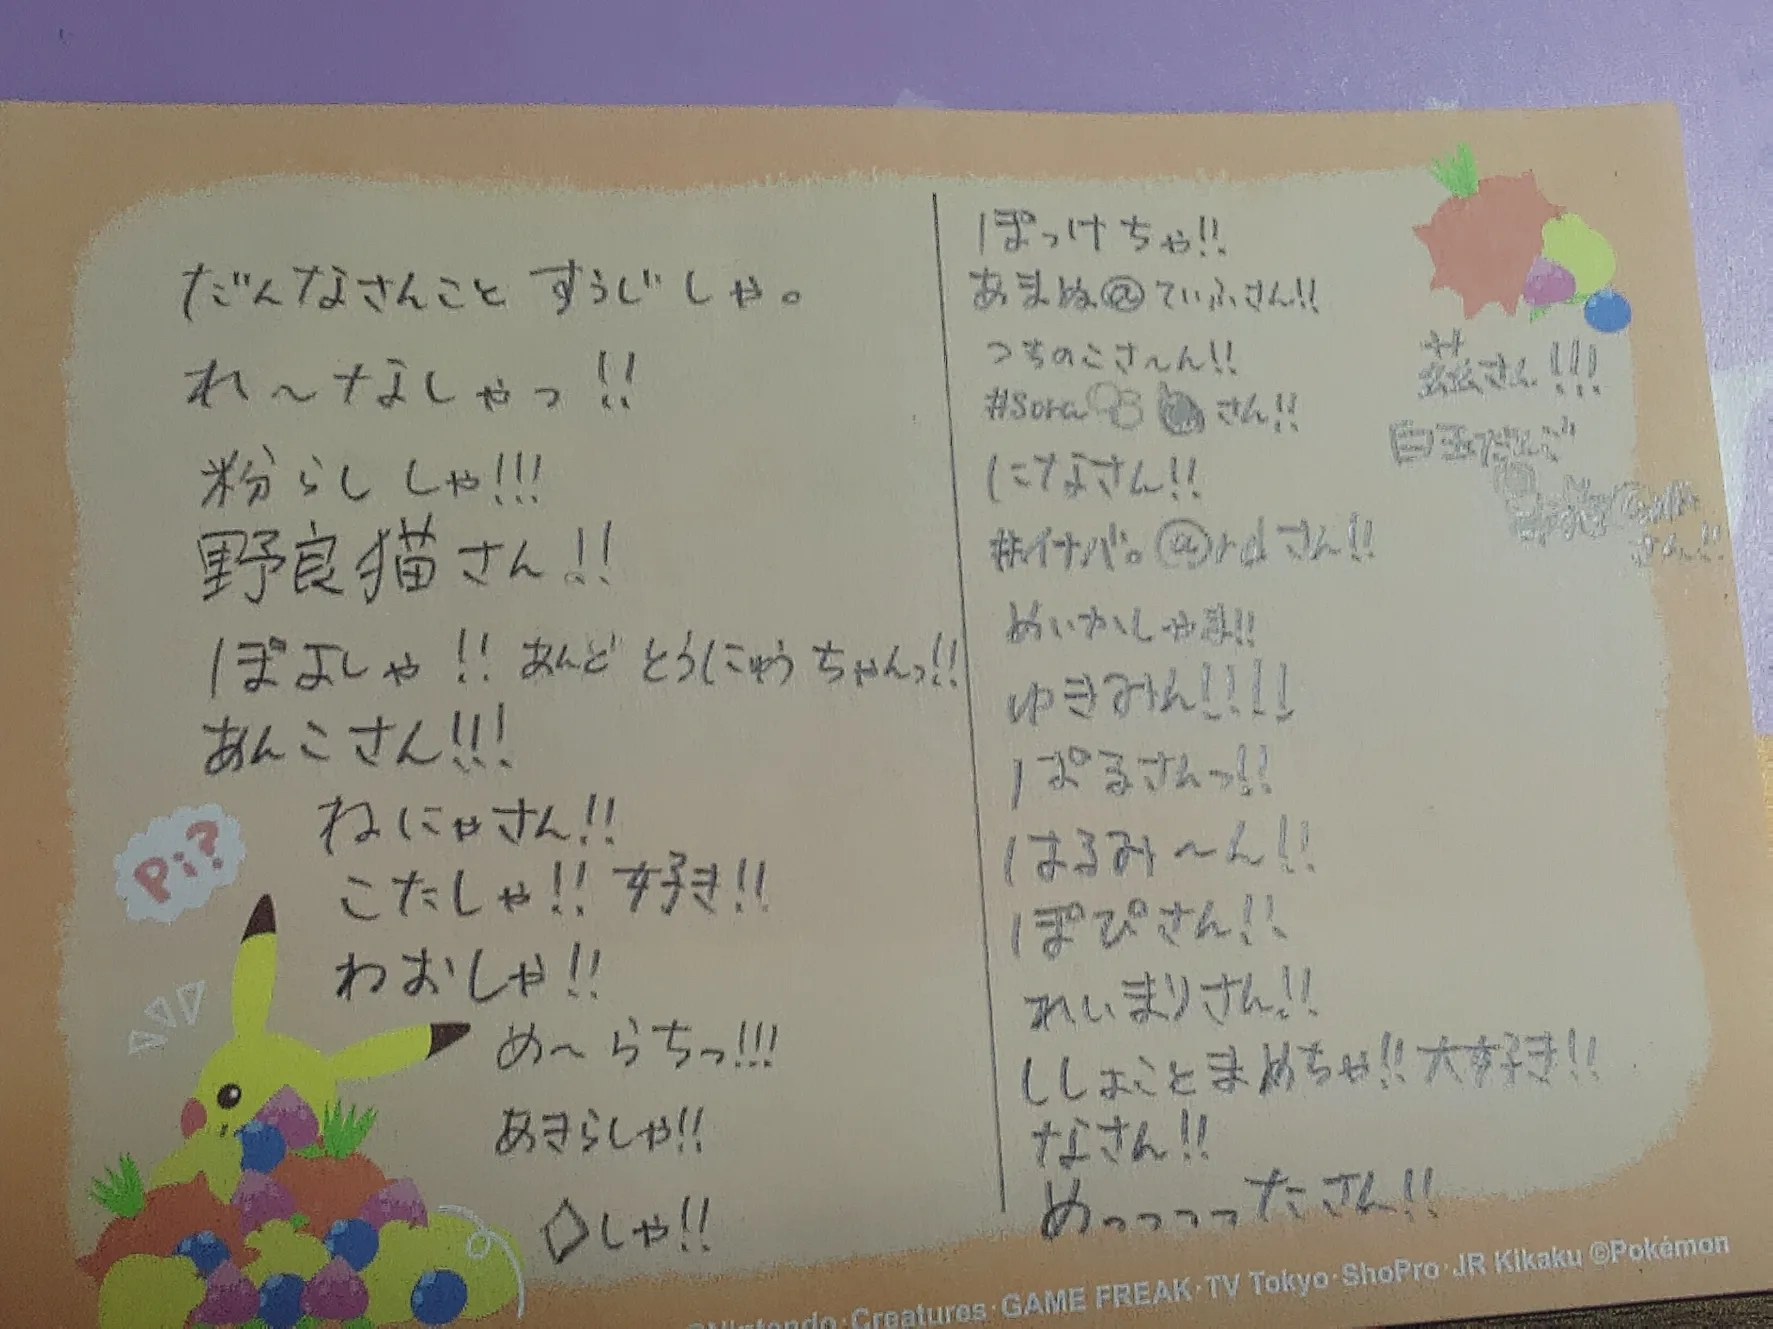 だんなさんこと すうじしゃ。
れ〜なしゃっ!!
粉らし しゃ!!!
野良猫さん!!
ぽよしゃ!! あんど とうにゅうちゃんっ!!
あんこさん!!!
ねにゃさん!!
こたしゃ!! 好き!!
わおしゃ!!
め〜らちっ!!!
あきらしゃ!!
◇しゃ!!
Pi?
ぽっけちゃ!!
あまぬ@てぃふさん!!
つちのこさ〜ん!!
#Sora さん!!
になさん!!
#イナバ。@rdさん!!
めいかしゃま!!
ゆきみん!!!!
ぱるさんっ!!
はるみ〜ん!!
ぽぴさん!!
れいまりさん!!
ししょこと まめちゃ!! 大好き!!
なさん!!
めっっっったさん!!
さん!!!
白玉だんご
さん!!
©Nintendo・Creatures・GAME FREAK・TV Tokyo・ShoPro・JR Kikaku ©Pokémon